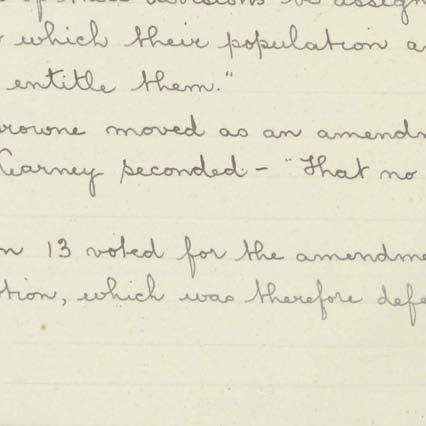 of these divisions be assign
which their population a
entitle them."
rowne moved as an amendm
Kearney seconded - "That no
n 13 voted for the amendme
tion, which was therefore defe